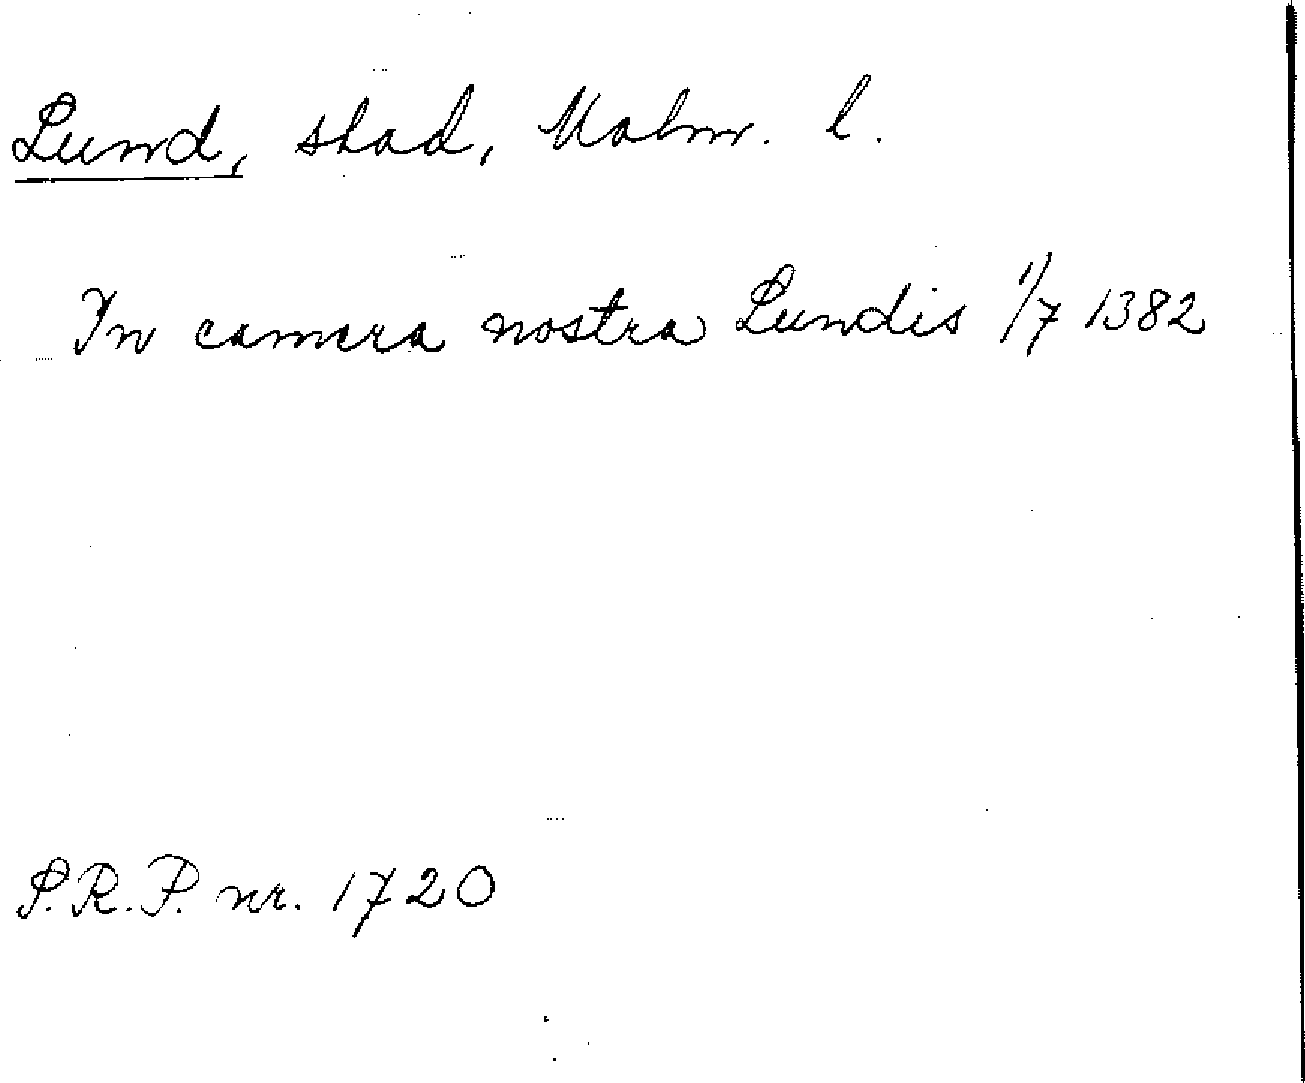 Lund, stad, Malm. l.
In camera nostra Lundis 1/7 1382
S.R.P. nr. 1720